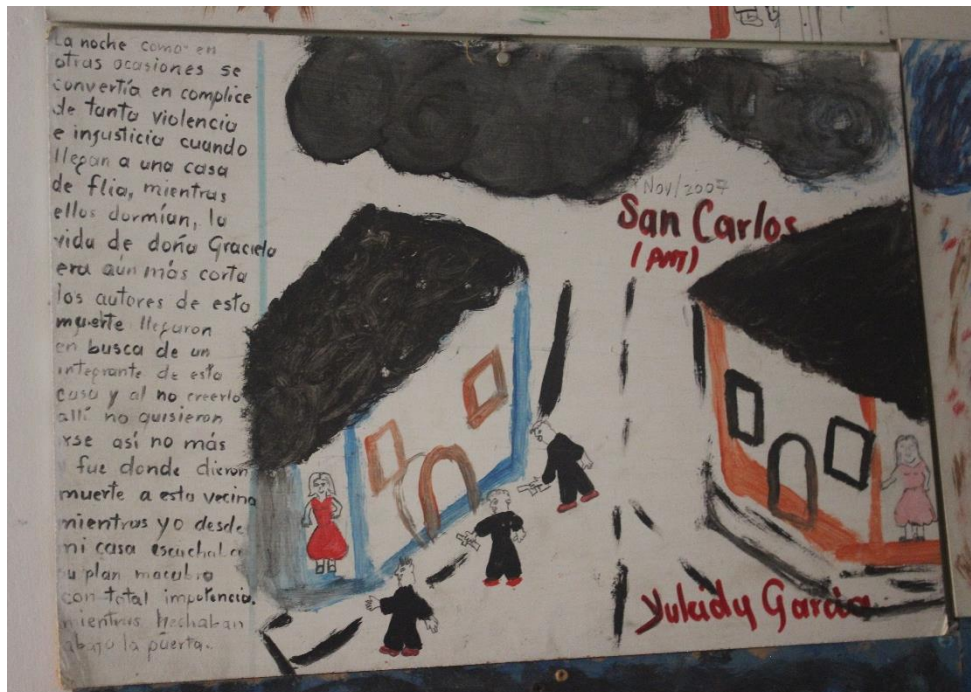 La noche como en
otras ocasiones se
convertía en complice
de tanta violencia
e injusticia cuando
llegan a una casa
de flia, mientras
ellos dormían, la
vida de doña Graciela
era aún más corta
los autores de esta
muerte llegaron
en busca de un
integrante de esta
casa y al no creerlo
allí no quisieron
irse así no más
y fue donde dieron
muerte a esta vecina
mientras yo desde
mi casa escuchaba
su plan macabro
con total impotencia.
mientras hechaban
abajo la puerta.
Nov/2007
San Carlos
(ANT)
Yuleidy Garcia